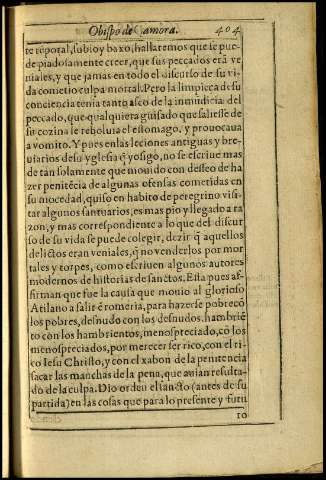 Obispo de Çamora. 404
te tẽporal, subio y baxo, hallaremos que se pue-
de piadosamente creer, que sus peccados erã ve
niales, y que jamas en todo el discurso de su vi-
da cometio culpa mortal. Pero la limpieca de su
conciencia tenia tanto asco de la inmũdicia del
peccado, que qualquiera guisado que saliesse de
su cozina le reboluia el estomago, y prouocaua
a vomito. Y pues en las leciones antiguas y bre-
uiarios de su yglesia q̃ yo sigo, no se escriue mas
de tan solamente que mouido con desseo de ha
zer penitẽcia de algunas ofensas cometidas en
su mocedad, quiso en habito de peregrino visi-
tar algunos santuarios, es mas pio y llegado a ra
zon, y mas correspondiente a lo que del discur
so de su vida se puede colegir, dezir q̃ aquellos
delictos eran veniales, q̃ no venderlos por mor
tales y torpes, como escriuen algunos autores
modernos de historias de sanctos. Esta pues af-
firman que fue la causa que mouio al glorioso
Atilano a salir ẽ romeria, para hazerse pobre cõ
los pobres, desnudo con los desnudos, hambriẽ
to con los hambrientos, menospreciado, cõ los
menospreciados, por merecer ser rico, con el ri-
co Iesu Christo, y con el xabon de la penitencia
sacar las manchas de la pena, que auian resulta-
do de la culpa. Dio orden el sancto (antes de su
partida) en las cosas que para lo presente y futu
ro